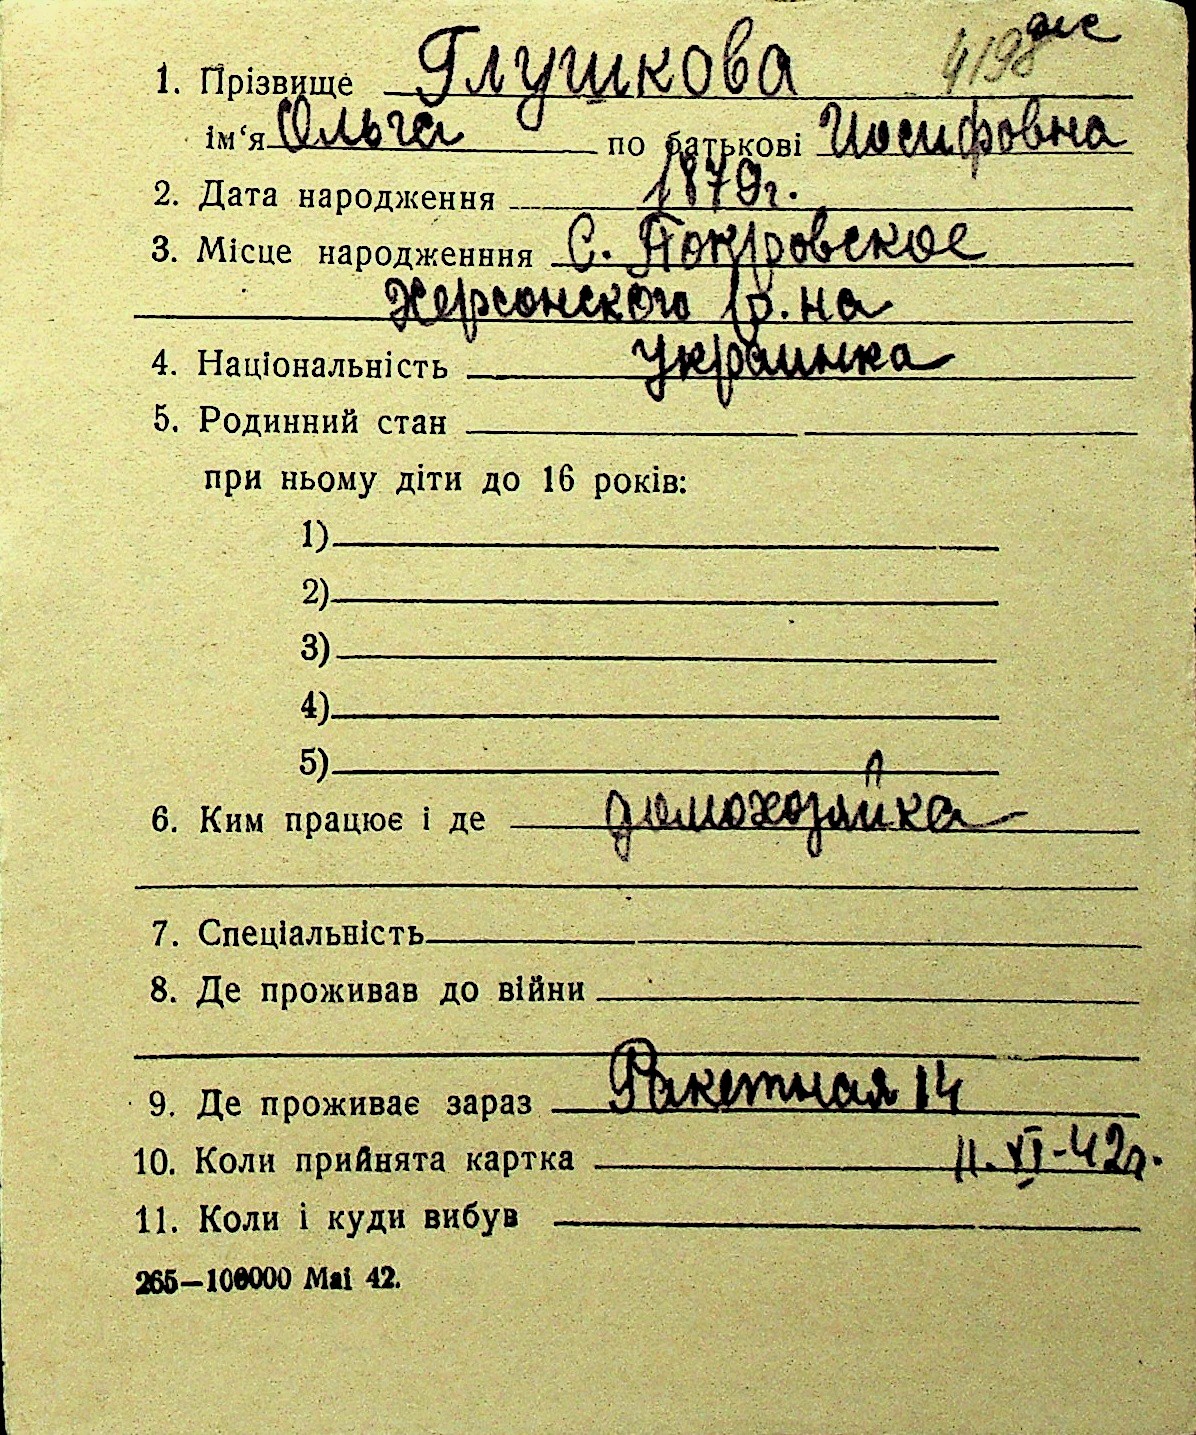 4198
1. Прізвище Глушкова
ім‘я Ольга по батькові Иосифовна
2. Дата народження 1879г.
3. Місце народженння С. Покровское
Херсонского р.на
4. Національність украинка
5. Родинний стан
при ньому діти до 16 років:
1)
2)
3)
4)
5)
6. Ким працює і де домохозяйка
7. Спеціальність
8. Де проживав до війни
9. Де проживає зараз Ракетная 14
10. Коли прийнята картка 11.XI-42г.
11. Коли і куди вибув
265—100000 Mai 42.